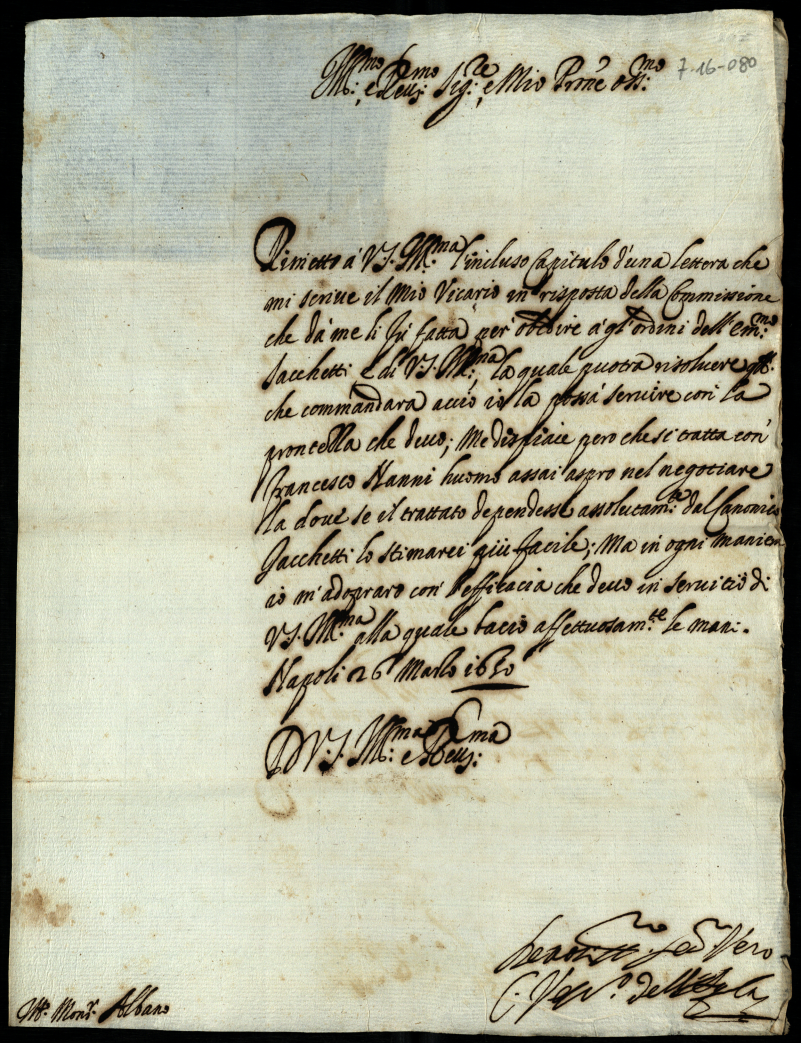 7-16-080
Ill:mo e Reu:mo Sig:re e Mio Prone oss:mo
Rimetto à V.S. Ill:ma l'incluso Capitulo d'una lettera che
mi scriue il Mio Vicario in risposta della Commissione
che da me li fù fatta per obedire à gl'ordini dell'em:mo
Sacchetti e di V.S. Ill:ma, la quale puotra risoluere
che commandara acciò io la possa seruire con la
prontezza che deuo; Me dispiace pero che si tratta con
Francesco Nanni huomo assai aspro nel negotiare
la doue se il trattato dependesse assolutam:te dal Canonico
Sacchetti lo stimarei più facile; Ma in ogni maniera
io m'adopraro con l'efficacia che deuo in seruitio di
V.S. Ill:ma alla quale bacio affettuosam:te le mani.
Napoli 26 Marzo 1650
D V.S. Ill:ma e Reu:ma
Vero
Mons.r Albano